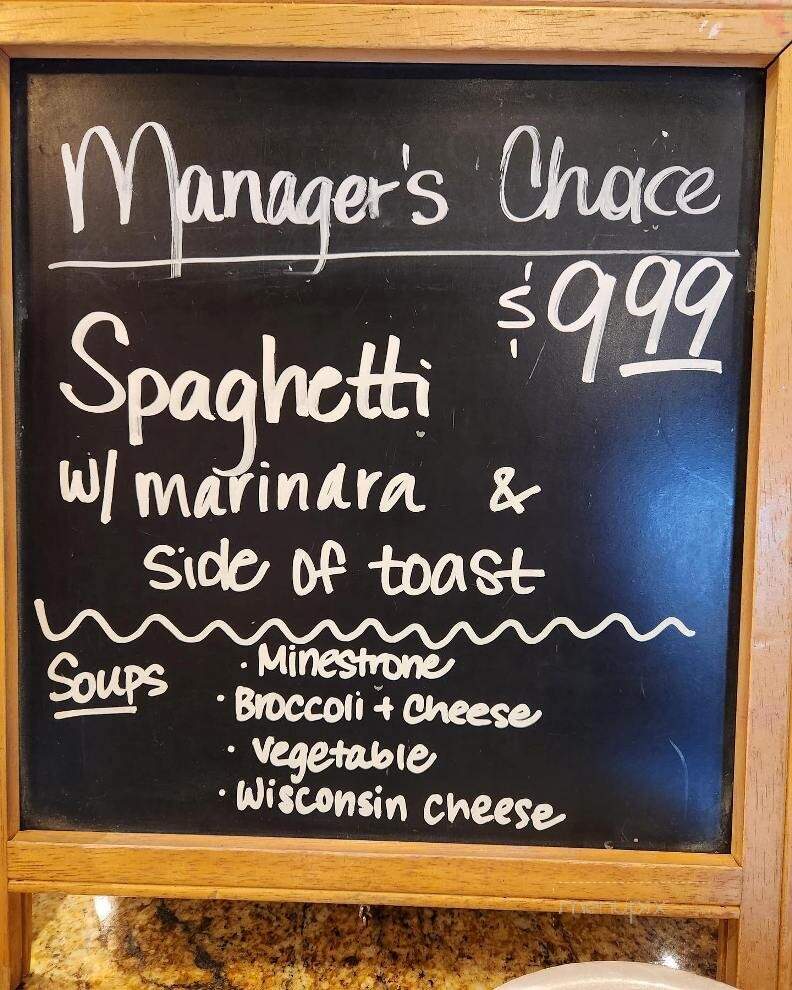 Manager's Choice
$9 99
Spaghetti
w/ marinara &
side of toast
Soups
· Minestrone
· Broccoli + Cheese
· Vegetable
· Wisconsin Cheese
menupix